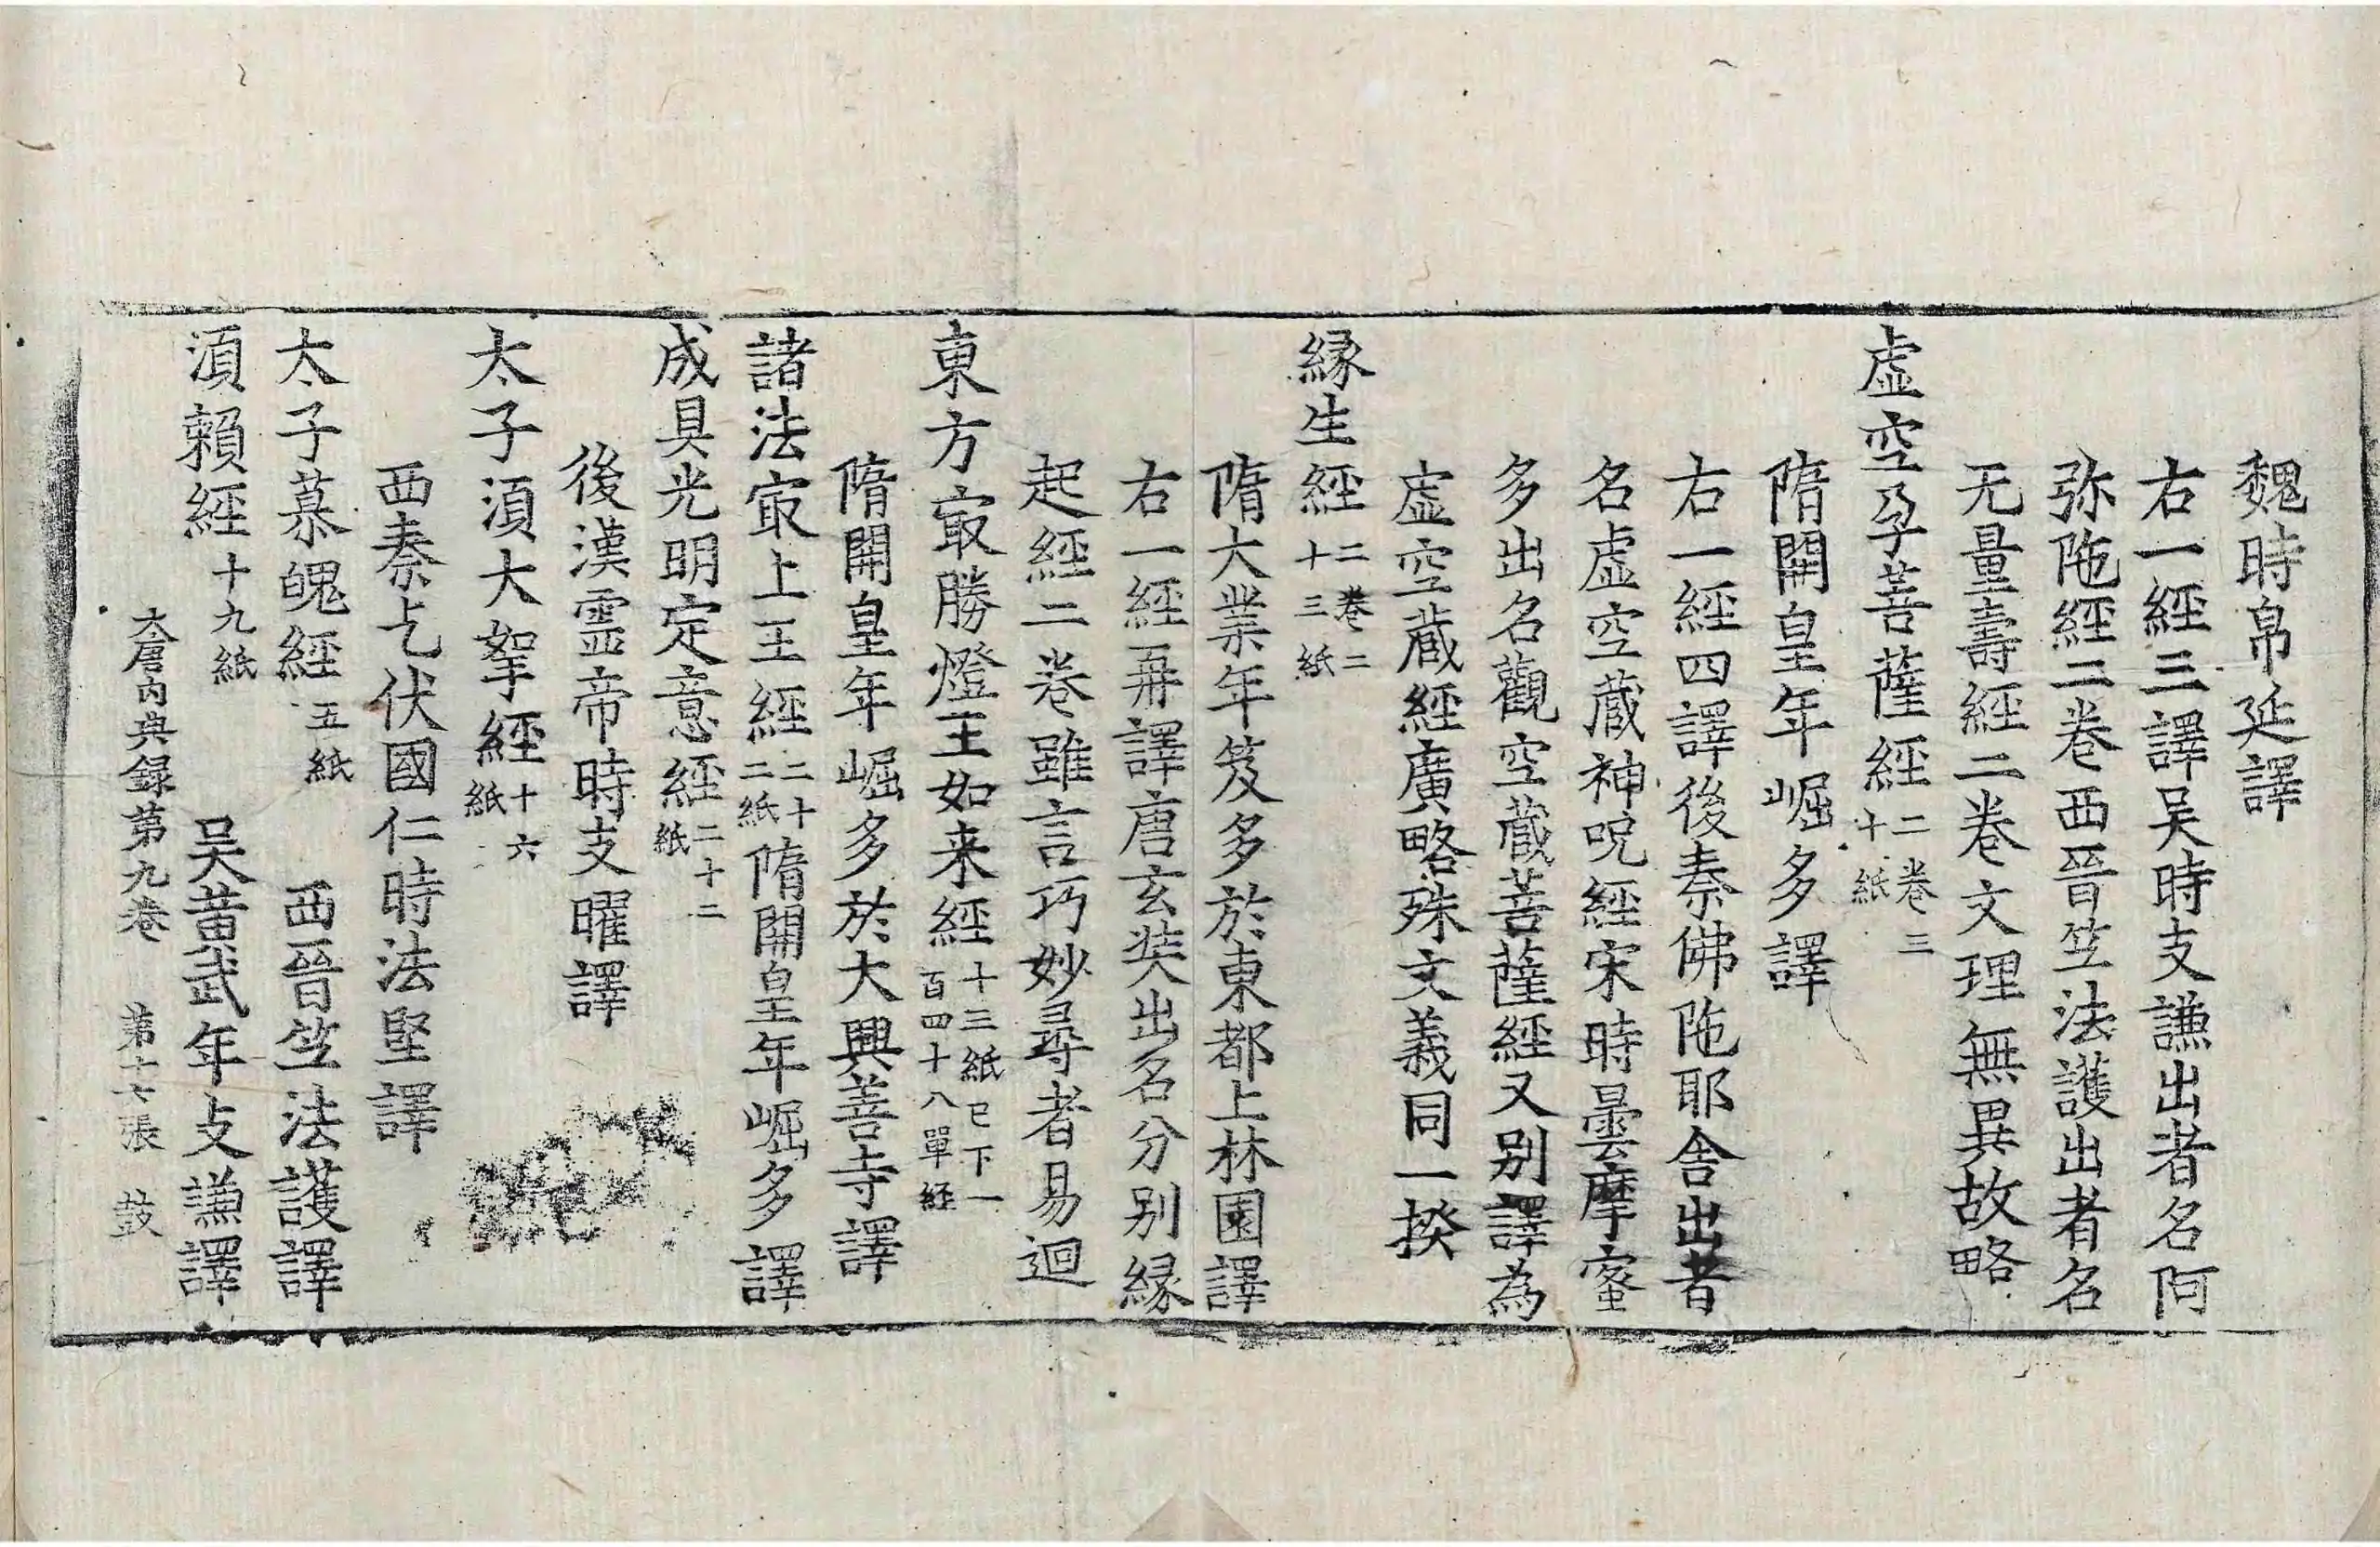 魏時帛延譯
右一經三譯吴時支謙出者名阿
弥陁經二卷西晉竺法護出者名
无量壽經二卷文理無異故略
虛空孕菩薩經二卷三十紙
隋開皇年崛多譯
右一經四譯後秦佛陁耶舍出者
名虛空蔵神呪經宋時曇摩蜜
多出名觀空蔵菩薩經又别譯為
虛空蔵經廣略殊文義同一揆
縁生經二卷二十三紙
隋大業年笈多於東都上林園譯
右一經再譯唐玄奘出名分别縁
起經二卷雖言巧妙尋者易迴
東方㝡勝燈王如来經十三紙已下一百四十八單經
隋開皇年崛多於大興善寺譯
諸法㝡上王經二十二紙隋開皇年崛多譯
成具光明定意經二十二紙
後漢靈帝時支曜譯
太子湏大拏經十六紙
西秦乞伏國仁時法堅譯
太子慕魄經五紙 西晉竺法護譯
湏頼經十九紙 吴黄武年支謙譯
大唐内典録第九卷 第十七張 鼓